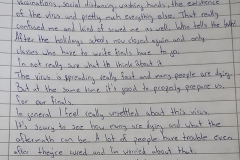 vaccinations, social distancing, washing hands, the existence
of the virus and pretty much everything else. That really
confused me and kind of scared me as well. Who tells the truth?
After the holidays schools now closed again and only
classes who have to write finals have to go.
Im not really sure what to think about it.
The virus is spreading really fast and many people are dying.
But at the same time it's good to properly prepare us
for our finals.
In general I feel really unsettled about this virus.
It's scary to see how many are dying and what the
aftermath can be. A lot of people have trouble even
after theyre cured and Im worried about that.